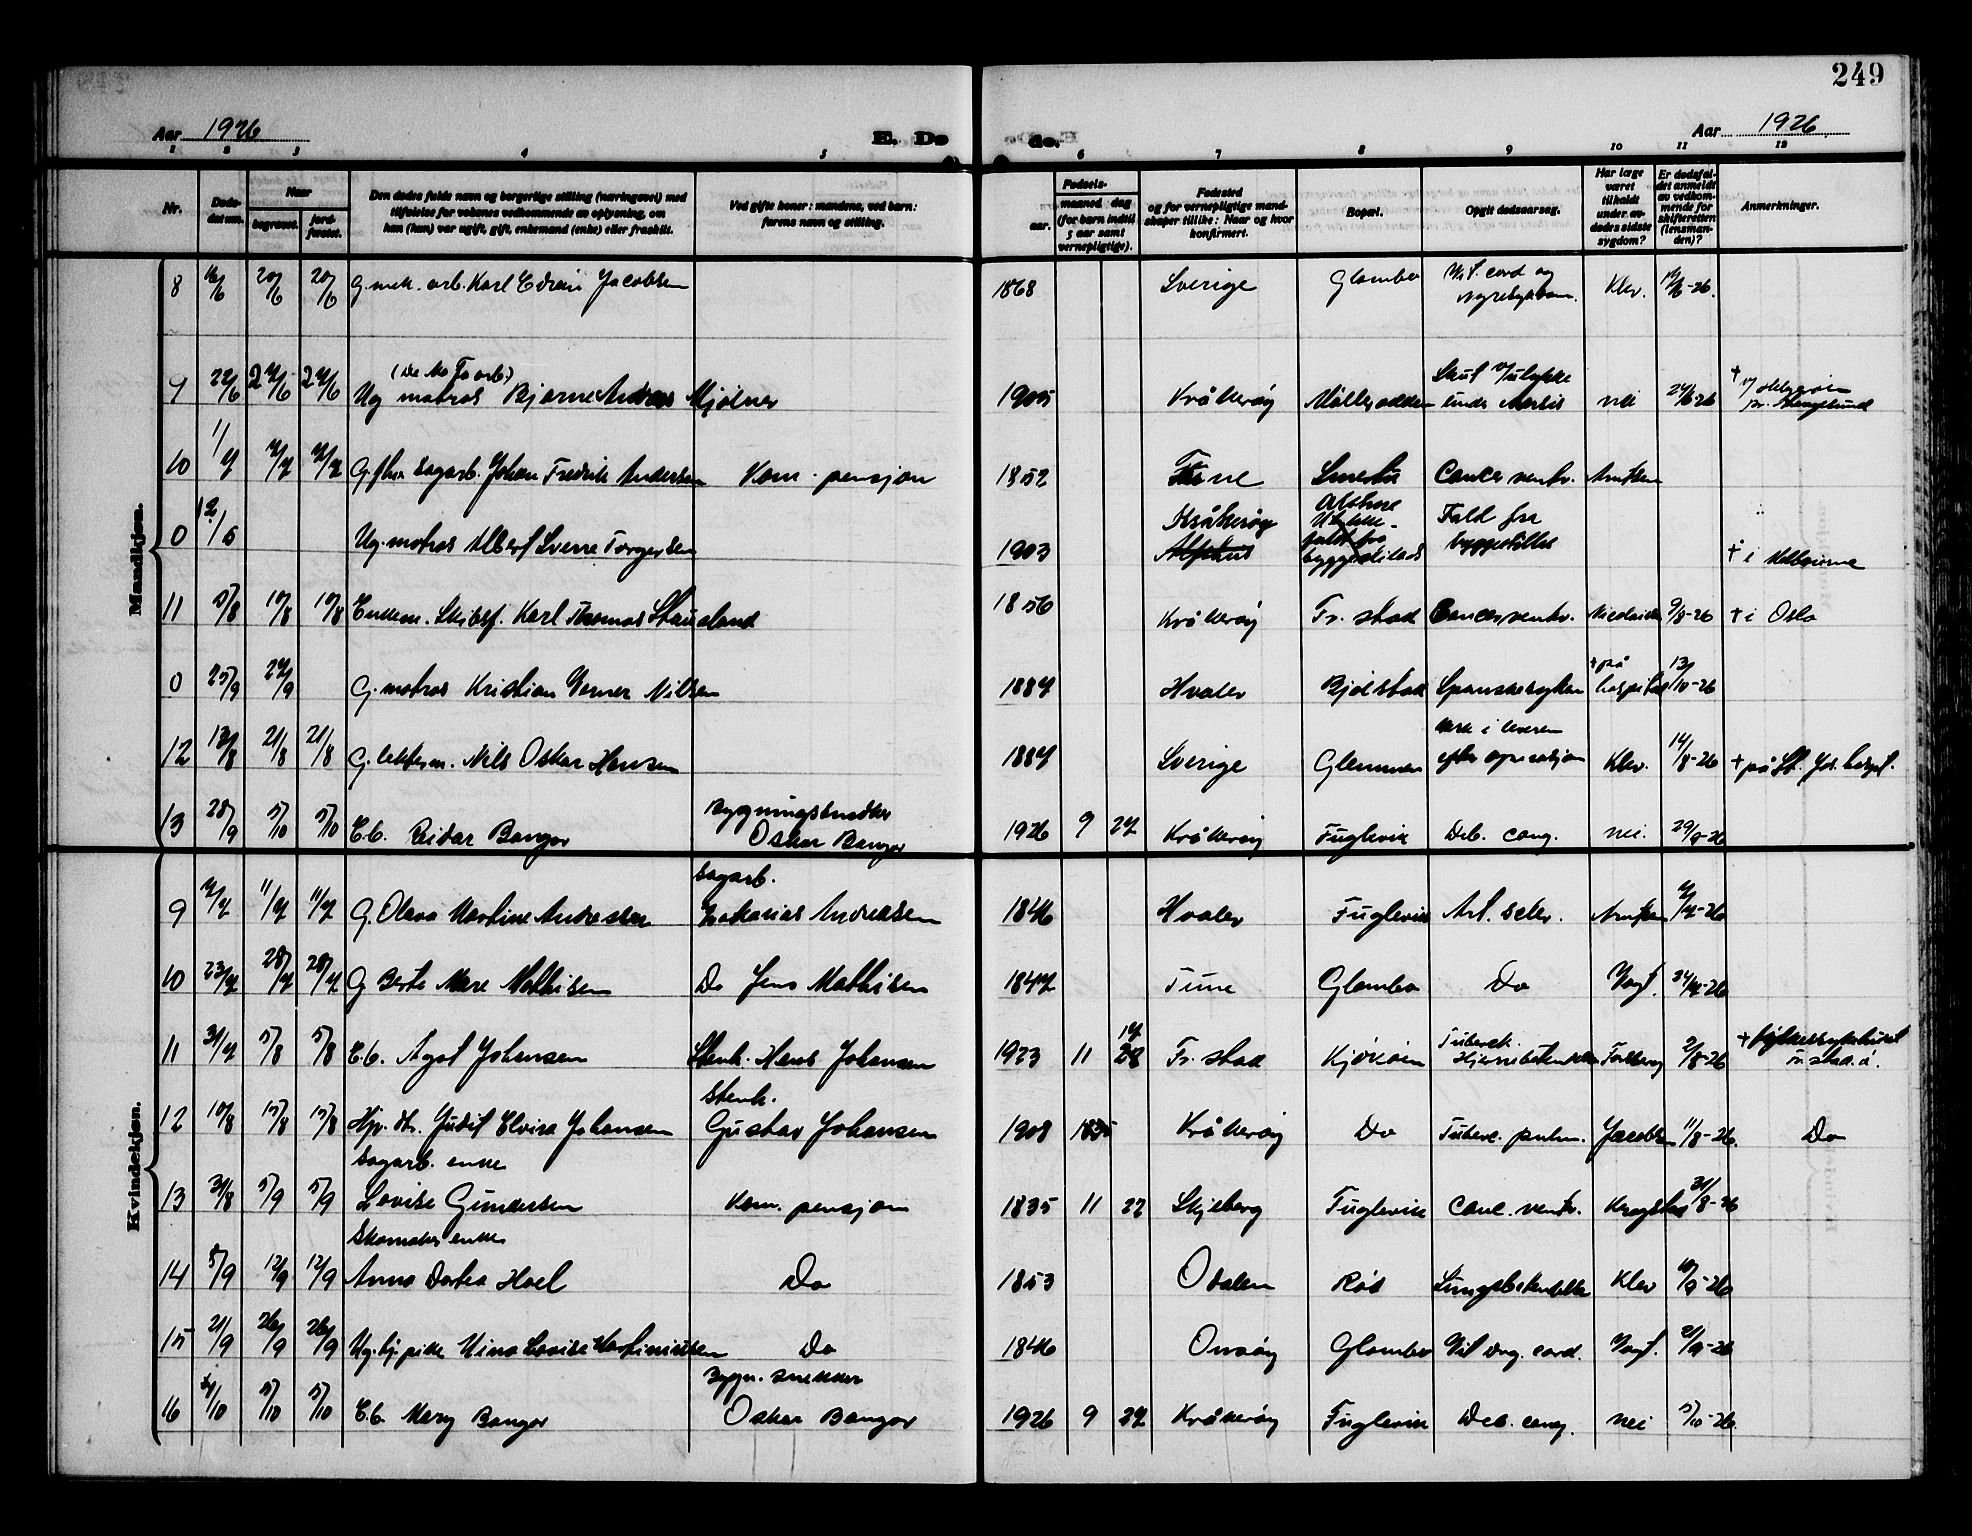 249
Aar 1926
E. Dø
de.
Aar 1926
1 2 3 4 5 6 7 8 9 10 11 12
Nr.
Døds-datum.
Naar
begravet.
jord-fæstet.
Den dødes fulde navn og borgerlige stilling (næringsvei) med
tilføielse for voksnes vedkommende av oplysning, om
han (hun) var ugift, gift, enkemand (enke) eller fraskilt.
Ved gifte koner: mandens, ved barn:
farens navn og stilling.
Fødsels-
aar.
maaned dag
(for barn indtil
5 aar samt
vernepligtige).
Fødested
og for vernepligtige mand-
skaper tillike: Naar og hvor
konfirmert.
Bopæl.
Opgit dødsaarsag.
Har læge
været
tilkaldt
under av-
dødes sidste
sygdom?
Er dødsfal-
det anmeldt
av vedkom-
mende for
skifteretten
(lensman-
den)?
Anmerkninger.
Mandkjøn.
8 16/6 20/6 20/6 G. mek. arb. Karl Edvin Jacobsen 1868 Sverige Glombo Vit. cord og nyresykdom. Klev. 19/6-26.
9 22/6 27/6 27/6 Ug matros Bjarne Andreas Mjølner 1905 Kråkerøy Mølleodden nei 24/6-26
10 1/7 7/7 7/7 G. fhv. sagarb. Johan Fredrik Andersen Kom. pensjon 1852 Tune Smertu Cancer ventr. Arntzen
0 12/5 Ug. matros Albert Sverre Torgersen 1903 Kråkerøy Fald fra byggestillas + i Melbourne
11 5/8 10/8 10/8 Enkem. Skibsf. Karl Thomas Stausland 1856 Kråkerøy Fr. stad Cancer ventr. 9/8-26 + i Oslo
0 25/9 29/9 G. matros Kristian Verner Nilsen 1887 Hvaler Bjølstad Spanskesyken + på hospital 13/10-26
12 13/8 21/8 21/8 G. Nils Oskar Hansen 1887 Sverige Glemmen i leveren efter operasjon Klev. 14/8-26 + på St. Jos. hospt.
13 28/9 5/10 5/10 E.b. Reidar Bangor Bygningssnekker Oskar Bangor 1926 9 27 Kråkerøy Fuglevik Deb. cong. nei. 29/9-26
Kvindekjøn.
9 7/7 11/7 11/7 G. Olava Martine Andreassen Sagarb. Zakarias Andreassen 1846 Hvaler Fuglevik Art. scler. Arntzen 7/7-26
10 23/7 28/7 28/7 G Berte Mare Mathisen Do Jens Mathisen 1847 Tune Glombo Do Vogt. 24/7-26
11 31/7 5/8 5/8 E.b. Agot Johansen Stenh. Hans Johansen 1923 11 17 Fr. stad Kjøkøen Tuberk. Hjernebetendelse Forberg 2/8-26
12 10/8 15/8 15/8 Hjv. dtr. Judit Elvira Johansen Stenh. Gustav Johansen 1908 Kråkerøy Do Tuberc. pulm. Jacobsen 11/8-26. Do
13 31/8 5/9 5/9 Sagarb. enke Lovise Gundersen Kom. pensjon 1835 11 22 Skjeberg Fuglevik Canc. ventr. Krogstad 31/8-26
14 5/9 12/9 12/9 Skomaker enke Anna Dortea Hoel Do 1853 Odalen Rød Lungebetendelse Klev 10/9-26
15 21/9 26/9 26/9 Ug. tj. pike Mina Lovise Martiniussen Do 1846 Onsøy Glombo Vit. org. cord. Vogt. 21/9-26
16 5/10 5/10 E.b. Mary Bangor Bygn. snekker Oskar Bangor 1926 9 27 Kråkerøy Fuglevik Deb. cong. nei 5/10-26